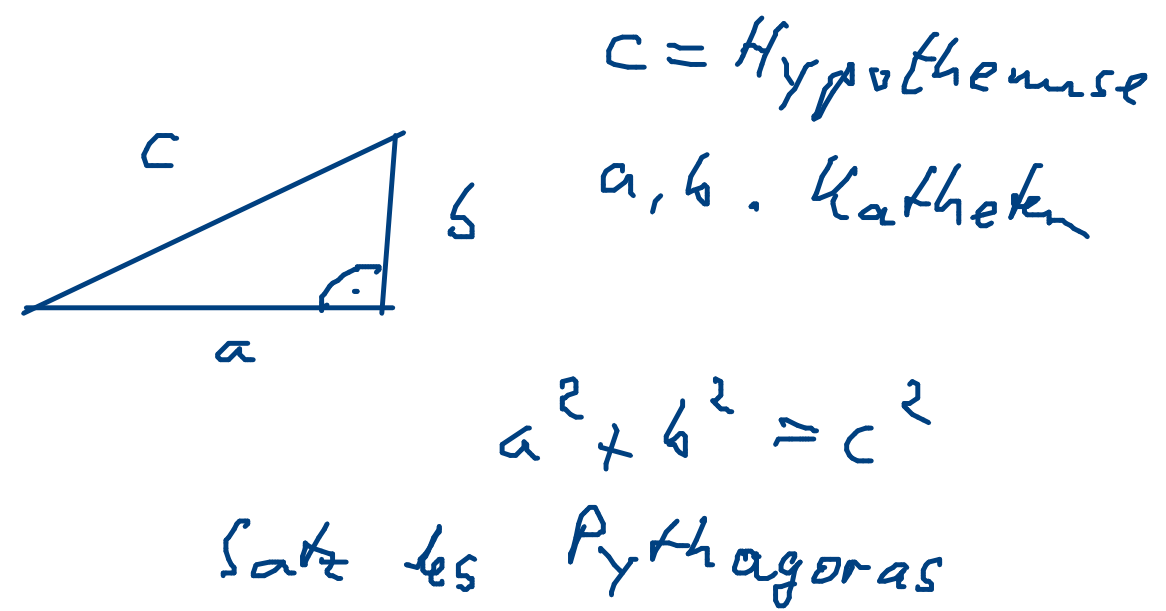 c = Hypothenuse
c
a, b . Katheten
b
a
a² + b² = c²
Satz des Pythagoras